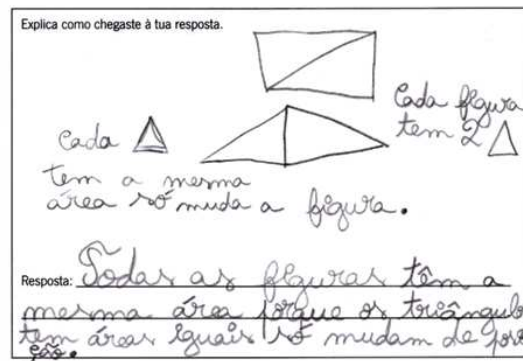 Explica como chegaste à tua resposta.
Cada figura
tem 2
Cada
tem a mesma
área só muda a figura.
Resposta: Todas as figuras têm a
mesma área porque os triângulo
tem áreas iguais só mudam de posi
ção.